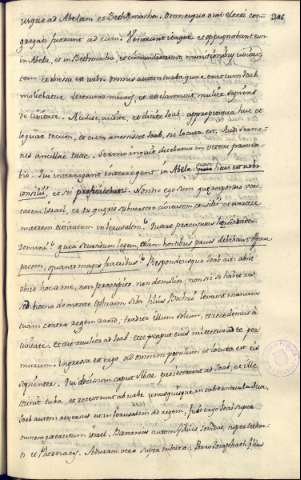 usque ad Abelam et Beth Maacha. omnesque viri electi con
gregati fuerant ad eum. Venerunt itaque et oppugnabant eum
in Abela, et in Bethmacha, et circumdederunt munitionibus civita
tem et obsessa est urbs omnis autem turba que erat cum Joab
moliebatur destruere muros, et exclamavit mulier sapiens
de civitate. Audite, audite, et dicite Joab: appropinqua huc et
loquar tecum, et cum accessisset Joab, sic locuta est. Audi sermo
nes ancillae tuae. Sermo inquit dicebatur in veteri prover
bio. Qui interrogant interrogent in Abela
et sic perficiebant. Nonne ego sum quae respondeo veri
tatem Israel, et tu quaeris subvertere civitatem et
matrem civitatum in Israel
quod secundum legem etiam hostibus prius debebant offerre
pacem, quanto magis fratribus. Respondensque Joab ait: absit
absit hoc a me, non praecipito non demolior, non si se habet res
sed homo de monte Ephraim Seba filius Bochri levavit manum
suam contra regem David, tradite illum solum, et recedemus a
civitate. Et ait mulier ad Joab. ecce caput eius mittetur ad te per
murum. Ingressa est ergo ad omnem populum et locuta est eis
sapienter. Qui abscissum caput Sibae, proiecerunt ad Joab, et ille
cecinit tuba, et recesserunt ab urbe unusquisque in tabernacula sua,
Joab autem reversus est in Jerusalem ad regem, fuit ergo Joab super
omnem exercitum israel. Banaias autem filius Joiadae super Cerethe
os et Phelethaeos. Aduram vero super tributa. Porro Josaphath filius